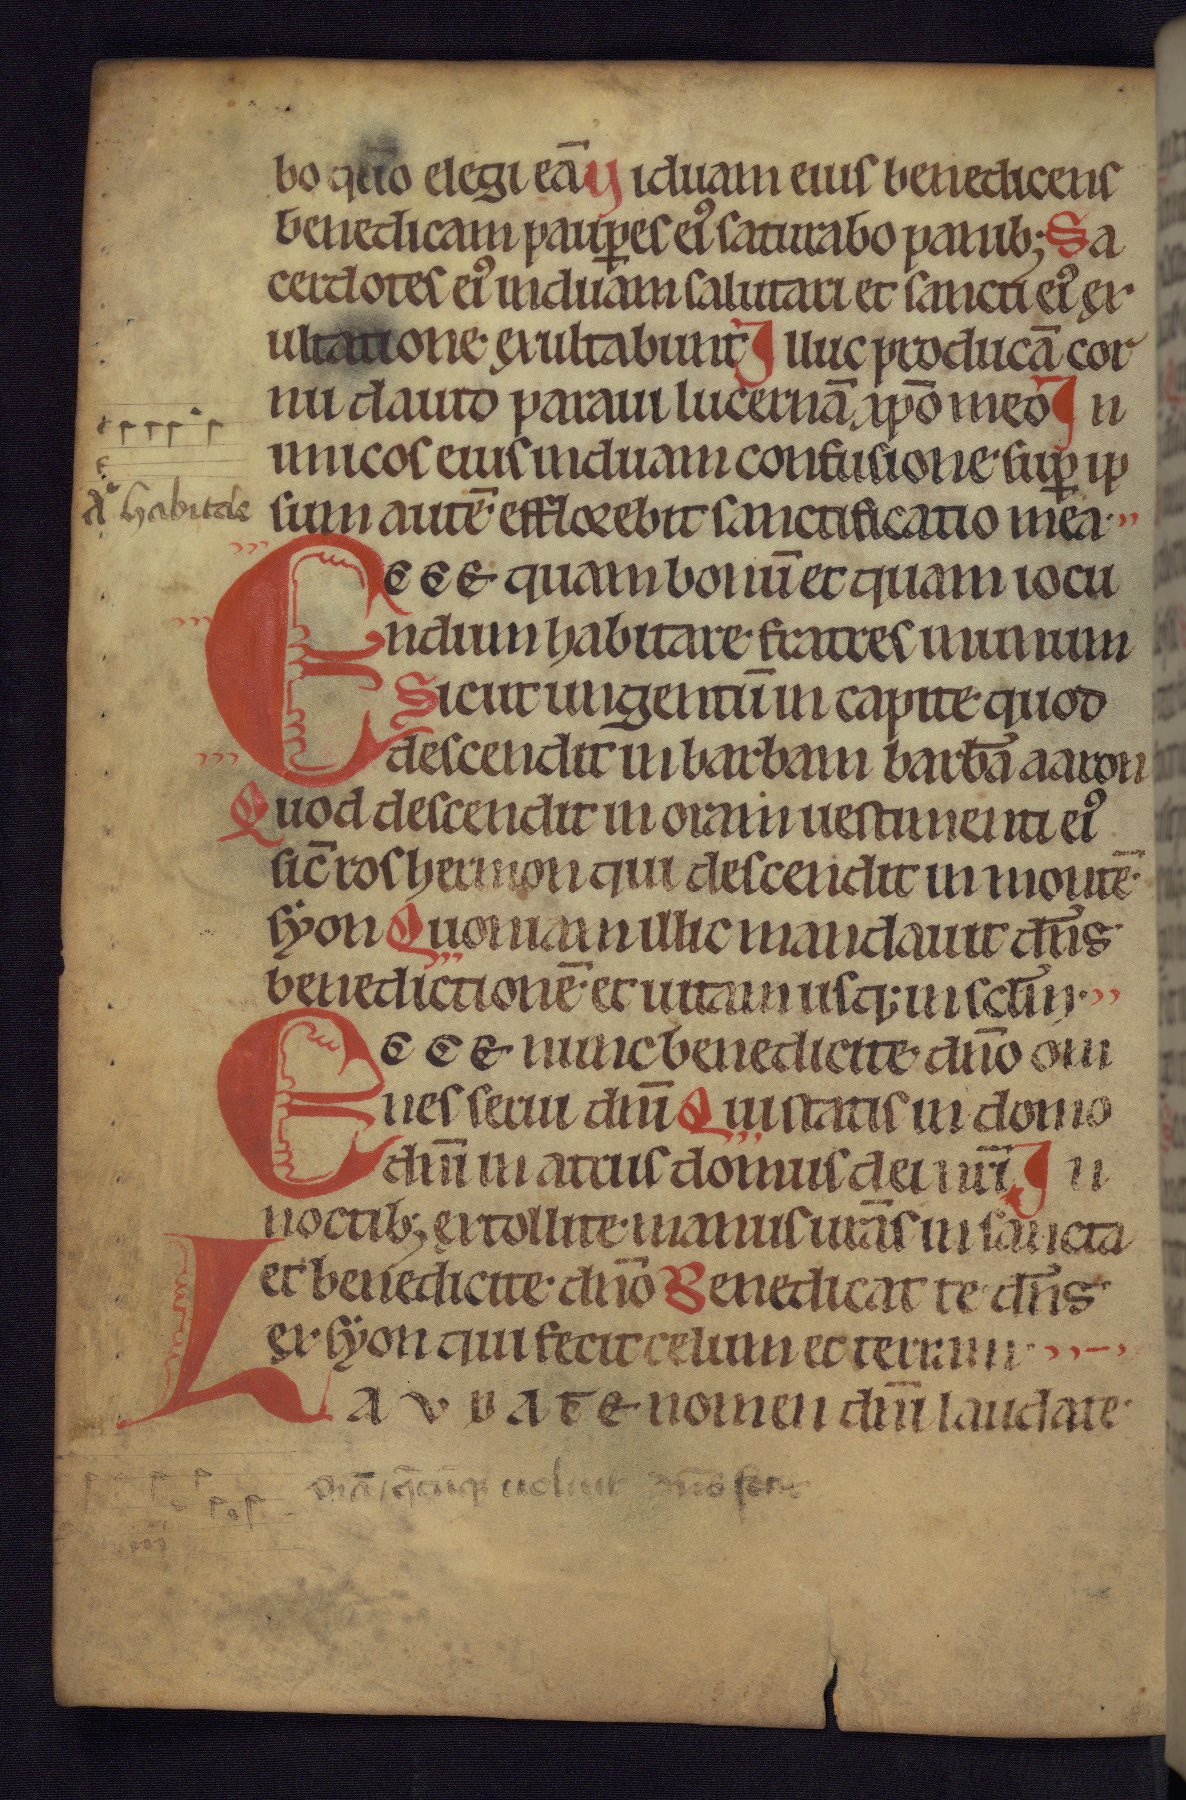 bo qm̄o elegi eā Viduam eius benedicens
benedicam paup̄es ei᾽ saturabo panib; Sa
cerdotes ei᾽ induam salutari et sancti ei᾽ ex
ultatione exultabunt Illuc producā cor
nu dauid paraui lucernā xp̄o meo In
imicos eius induam confusione sup̄ ip
sum autē efflorebit sanctificatio mea
A᾽ habitare
Ecce quam bonū et quam iocu
ndum habitare fratres in unum
Sicut ungentū in capite quod
descendit in barbam barbā aaron
Quod descendit in oram uestimenti ei᾽
sic̄ ros hermon qui descendit in montē
syon Quoniam illic mandauit dn̄s
benedictionē et uitam usq; in scl̄m
Ecce nunc benedicite dn̄o om
nes serui dn̄i Qui statis in domo
dn̄i in atriis domus dei nr̄i In
noctib; extollite manus urās in sancta
et benedicite dn̄o Benedicat te dn̄s
ex syon qui fecit celum et terram
LAVDATE nomen dn̄i laudate
uoluit